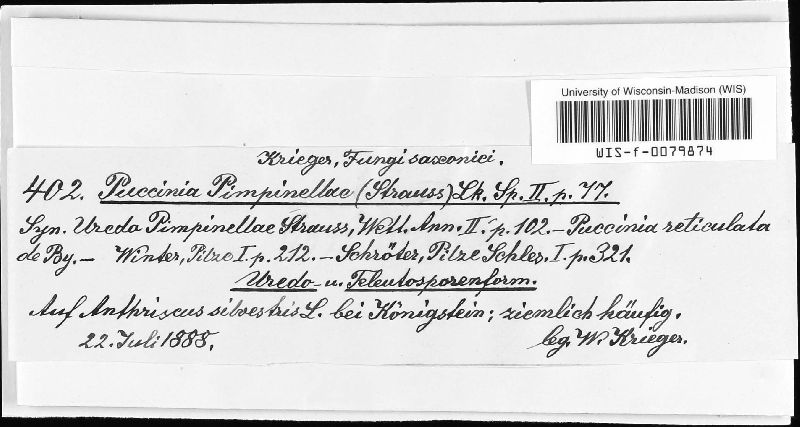 University of Wisconsin-Madison (WIS)
WIS-f-0079874
Krieger, Fungi saxonici.
402. Puccinia Pimpinellae (Strauss) Lk. Sp. II. p. 77.
Syn. Uredo Pimpinellae Strauss, Wett. Ann. II. p. 102. – Puccinia reticulata
de By. – Winter, Pilze I. p. 212. – Schröter, Pilze Schles. I. p. 321.
Uredo- u. Teleutosporenform.
Auf Anthriscus silvestris L. bei Königstein; ziemlich häufig.
22. Juli 1888.
leg. W. Krieger.